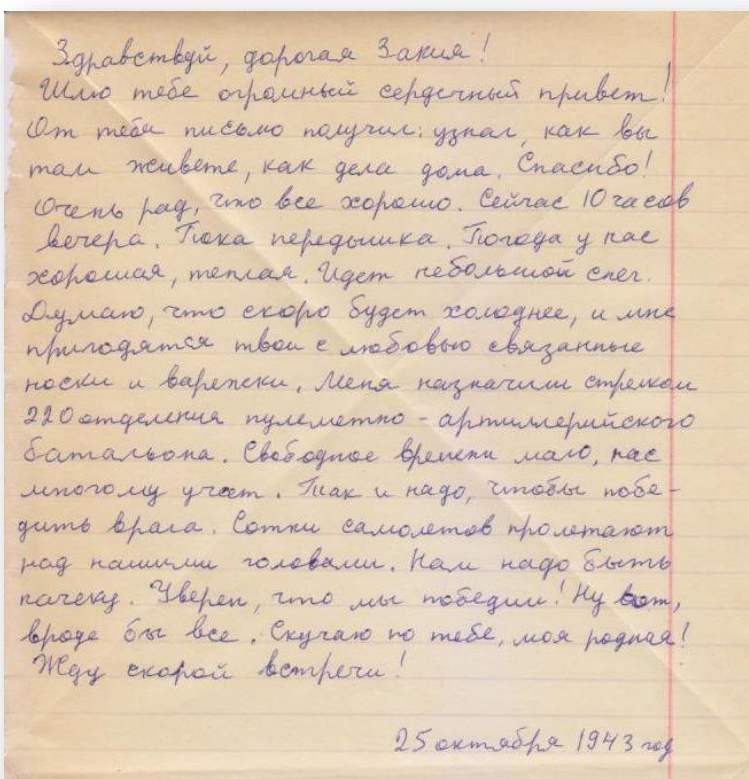 Здравствуй, дорогая Закия!
Шлю тебе огромный сердечный привет!
От тебя письмо получил: узнал, как вы
там живете, как дела дома. Спасибо!
Очень рад, что все хорошо. Сейчас 10 часов
вечера. Пока передышка. Погода у нас
хорошая, теплая. Идет небольшой снег.
Думаю, что скоро будет холоднее, и мне
пригодятся твои с любовью связанные
носки и варежски. Меня назначили стрелком
220 отделения пулеметно - артиллерийского
батальона. Свободное времени мало, нас
многому учат. Так и надо, чтобы побе-
дить врага. Сотки самолетов пролетают
над нашими головами. Нам надо быть
начеку. Уверен, что мы победим! Ну вот,
вроде бы все. Скучаю по тебе, моя родная!
Жду скорой встречи!
25 октября 1943 год